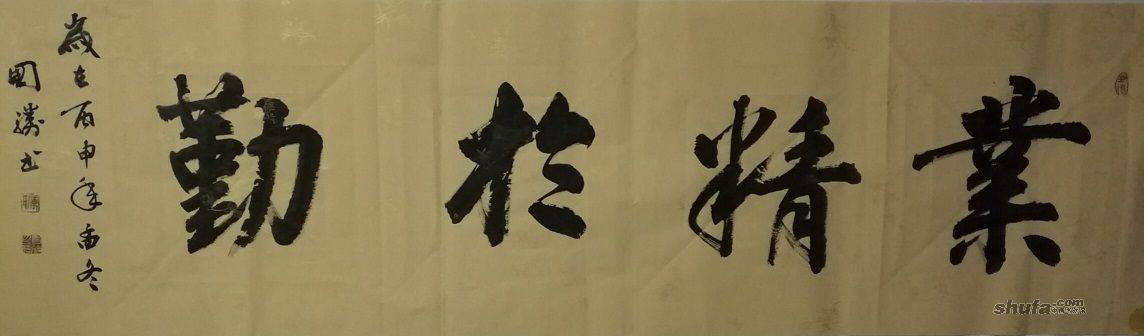 業精於勤
歲在丙申年孟冬
國勝书
shufa.com